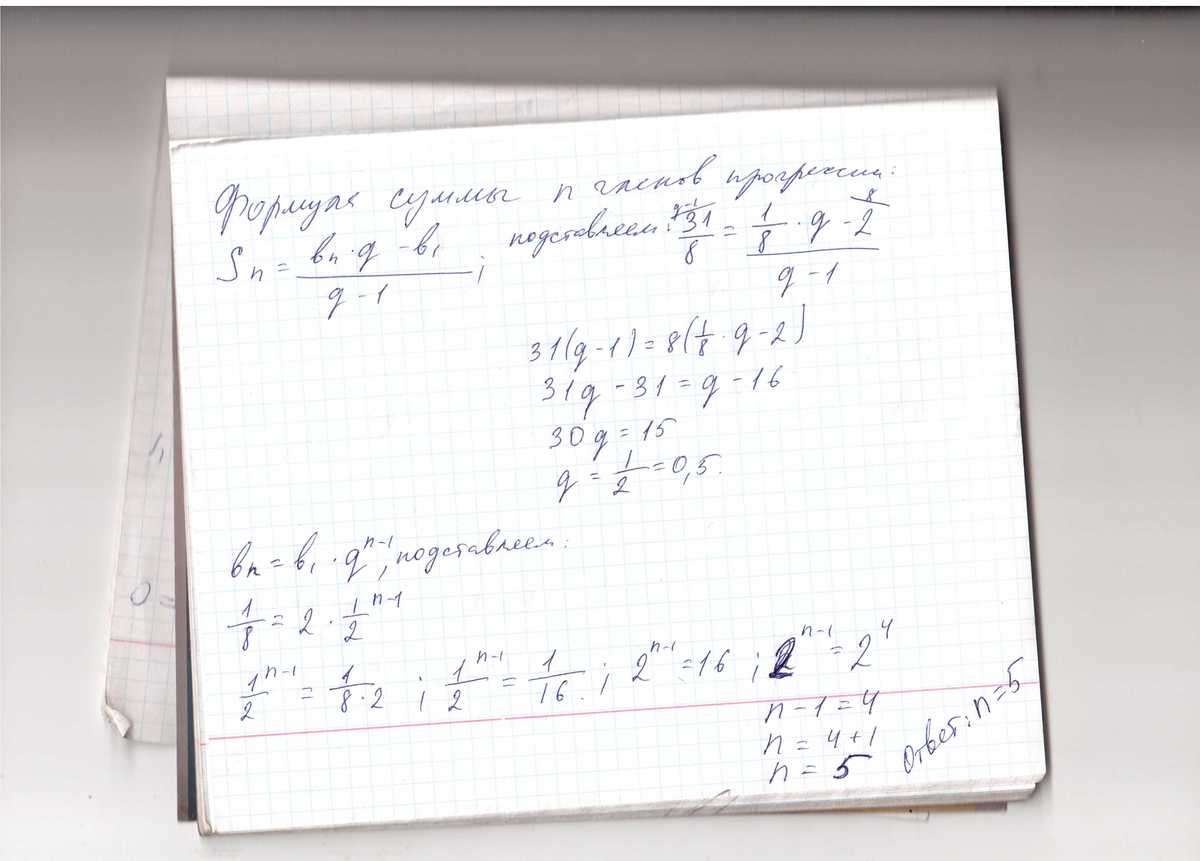 Формула суммы n членов прогрессии:
Sn = (вn·q - в1)/(q - 1) ; подставляем: 31/8 = (1/8 · q - 2)/(q - 1)
31(q-1) = 8(1/8 · q - 2)
31q - 31 = q - 16
30q = 15
q = 1/2 = 0,5.
вn = в1 · q^(n-1), подставляем:
1/8 = 2 · 1/2^(n-1)
1/2^(n-1) = 1/(8·2) ; 1/2^(n-1) = 1/16 ; 2^(n-1) = 16 ; 2^(n-1) = 2^4
n - 1 = 4
n = 4 + 1
n = 5
Ответ: n = 5